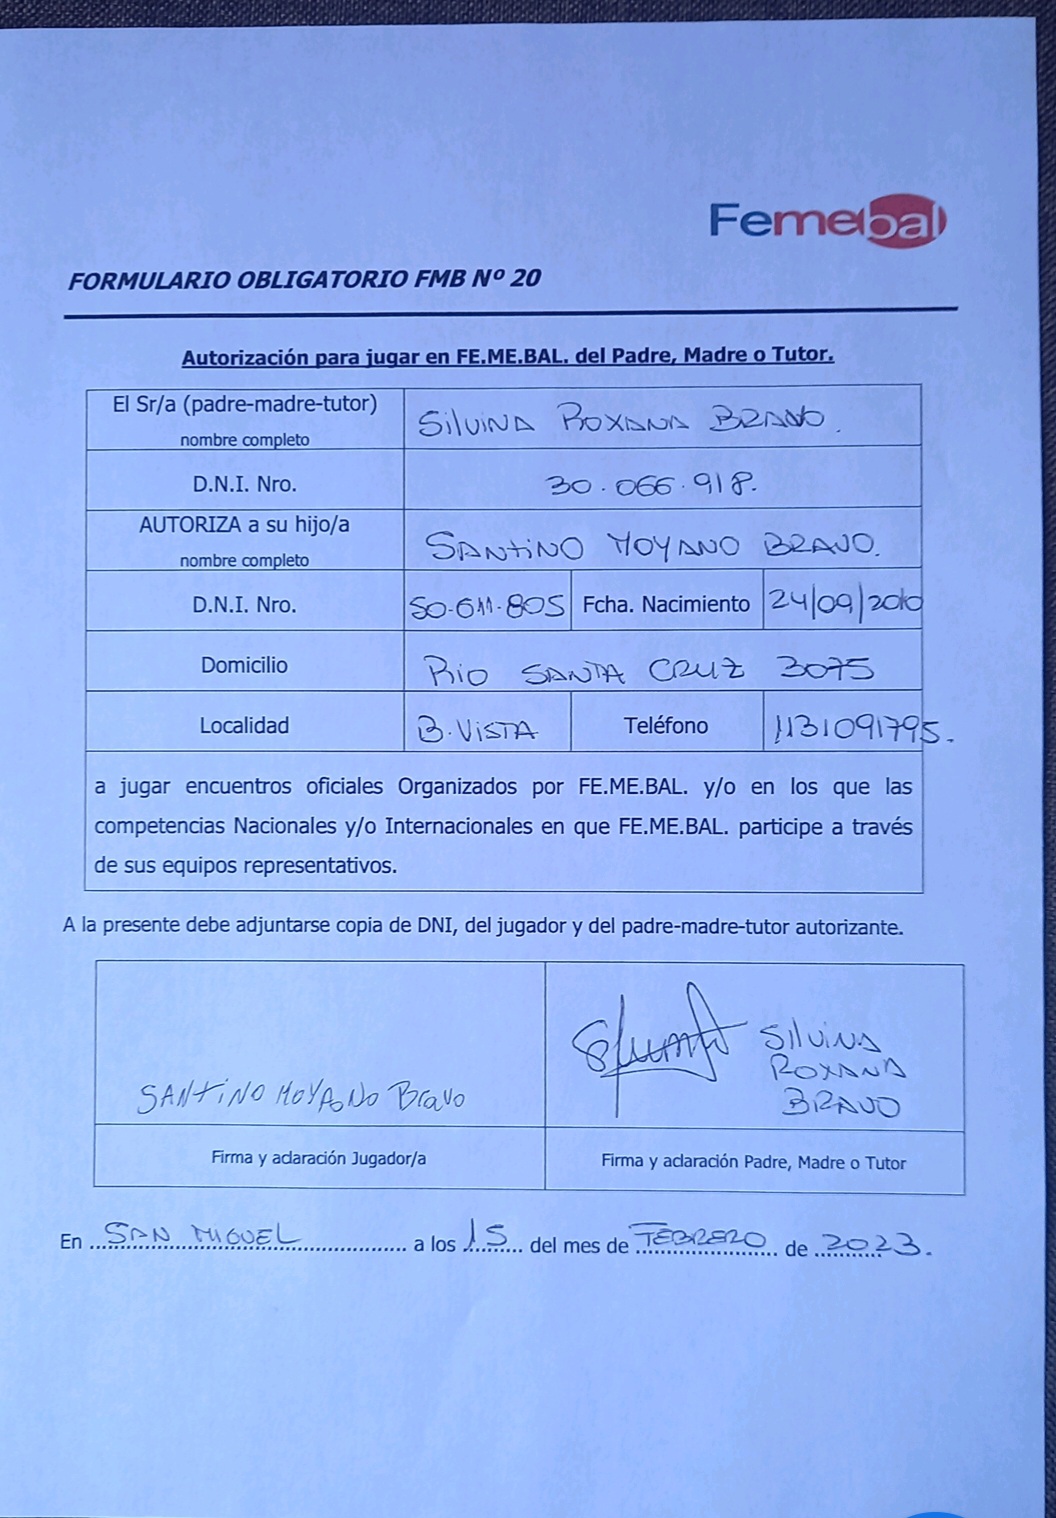 Femebal
FORMULARIO OBLIGATORIO FMB Nº 20
Autorización para jugar en FE.ME.BAL. del Padre, Madre o Tutor.
El Sr/a (padre-madre-tutor)
nombre completo
SilviNA ROXANA BRAVO.
D.N.I. Nro.
30.066.918.
AUTORIZA a su hijo/a
nombre completo
SANtiNO MOYANO BRAVO.
D.N.I. Nro.
50.611.805
Fcha. Nacimiento
24/09/2010
Domicilio
Rio SANTA CRUZ 3075
Localidad
B.ViSTA
Teléfono
1131091795.
a jugar encuentros oficiales Organizados por FE.ME.BAL. y/o en los que las
competencias Nacionales y/o Internacionales en que FE.ME.BAL. participe a través
de sus equipos representativos.
A la presente debe adjuntarse copia de DNI, del jugador y del padre-madre-tutor autorizante.
SANtiNO MOYANO Bravo
Silvina
ROXANA
BRAVO
Firma y aclaración Jugador/a
Firma y aclaración Padre, Madre o Tutor
En SAN MIGUEL a los 15 del mes de FEBRERO de 2023.